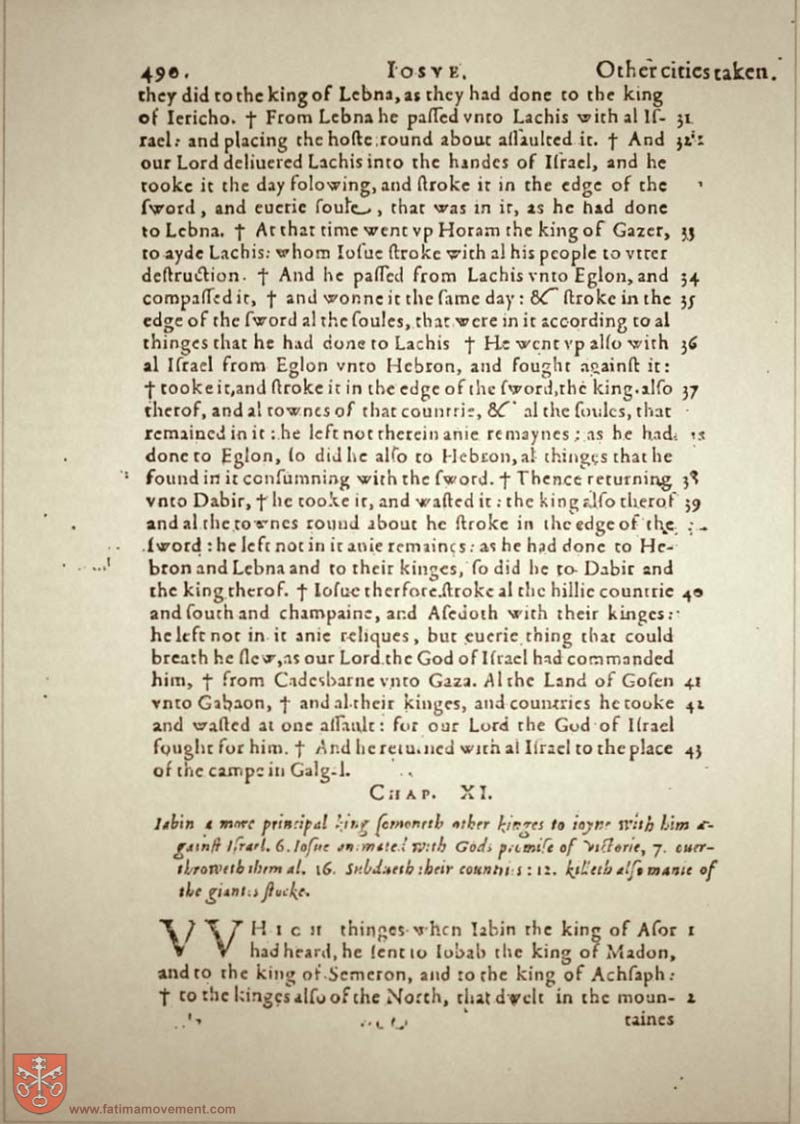 490. IOSVE. Other cities taken.
they did to the king of Lebna, as they had done to the king
of Iericho. † From Lebna he paſſed vnto Lachis with al Iſ- 31
rael: and placing the hoſte round about aſſaulted it. † And 32
our Lord deliuered Lachis into the handes of Iſrael, and he
tooke it the day folowing, and ſtroke it in the edge of the
ſword, and euerie ſoule, that was in it, as he had done
to Lebna. † At that time went vp Horam the king of Gazer, 33
to ayde Lachis: whom Ioſue ſtroke with al his people to vtter
deſtruction. † And he paſſed from Lachis vnto Eglon, and 34
compaſſed it, † and wonne it the ſame day: & ſtroke in the 35
edge of the ſword al the ſoules, that were in it according to al
thinges that he had done to Lachis † He went vp alſo with 36
al Iſrael from Eglon vnto Hebron, and fought againſt it:
† tooke it, and ſtroke it in the edge of the ſword, the king alſo 37
therof, and al townes of that countrie, & al the ſoules, that
remained in it: he left not therein anie remaynes: as he had
done to Eglon, ſo did he alſo to Hebron, al thinges that he
found in it conſumning with the ſword. † Thence returning 38
vnto Dabir, † he tooke it, and waſted it: the king alſo therof 39
and al the townes round about he ſtroke in the edge of the
ſword: he left not in it anie remaines: as he had done to He-
bron and Lebna and to their kinges, ſo did he to Dabir and
the king therof. † Ioſue therfore ſtroke al the hillie countrie 40
and ſouth and champaine, and Aſedoth with their kinges:
he left not in it anie reliques, but euerie thing that could
breath he ſlew, as our Lord the God of Iſrael had commanded
him, † from Cadesbarne vnto Gaza. Al the Land of Goſen 41
vnto Gabaon, † and al their kinges, and countries he tooke 42
and waſted at one aſſault: for our Lord the God of Iſrael
fought for him. † And he returned with al Iſrael to the place 43
of the campe in Galgal.
CHAP. XI.
Iabin a more principal king ſemoneth other kinges to ioyne with him a-
gainſt Iſrael. 6. Ioſue animated with Gods promiſe of victorie, 7. ouer-
throweth them al. 16. Subdueth their countries: 12. killeth alſo manie of
the giantes ſtocke.
VVHICH thinges when Iabin the king of Aſor 1
had heard, he ſent to Iobab the king of Madon,
and to the king of Semeron, and to the king of Achſaph:
† to the kinges alſo of the North, that dwelt in the moun- 2
taines
www.fatimamovement.com